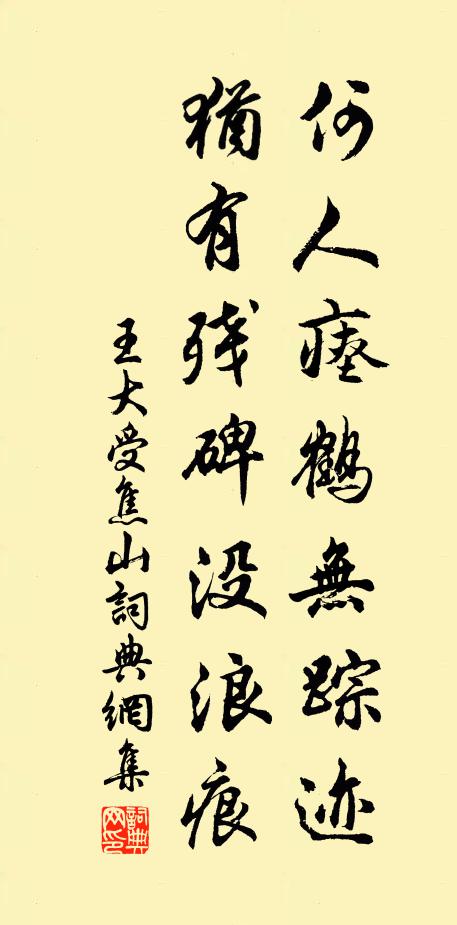 何人瘗鹤無踪迹
猶有残碑没浪痕
王大受焦山詞典網集
詞典网印